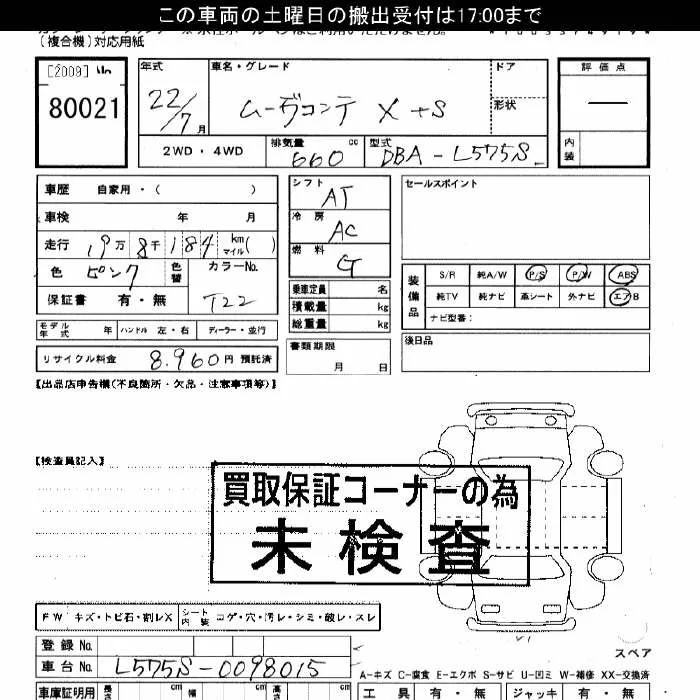 この車両の土曜日の搬出受付は17:00まで
(複合機)対応用紙
[2009]
80021
年式 車名・グレード ドア 評価点
22/7月 ムーヴコンテ X +S 形状 —
2WD・4WD 排気量 660 cc 型式 DBA-L575S 内装
車歴 自家用・( )
シフト AT
セールスポイント
車検 年 月
冷房 AC
走行 19万8千184 km マイル( )
燃料 G
色 ピンク 色替 カラーNo. T22
装備品 S/R 純A/W P/S P/W ABS
保証書 有・無
乗車定員 名
純TV 純ナビ 革シート 外ナビ エアB
積載量 kg
ナビ型番:
モデル年式 年 ハンドル 左・右 ディーラー・並行
総重量 kg
リサイクル料金 8,960円 預託済
書類期限 月 日
後日品
【出品店申告欄(不良箇所・欠品・注意事項等)】
【検査員記入】
買取保証コーナーの為
未検査
FW キズ・トビ石・割レX シート内装 コゲ・穴・汚レ・シミ・破レ・スレ
登録No.
スペア
車台No. L575S-0098015
A-キズ C-腐食 E-エクボ S-サビ U-凹ミ W-補修 XX-交換済
車庫証明用 長さ cm 幅 cm 高さ cm
工具 有・無 ジャッキ 有・無